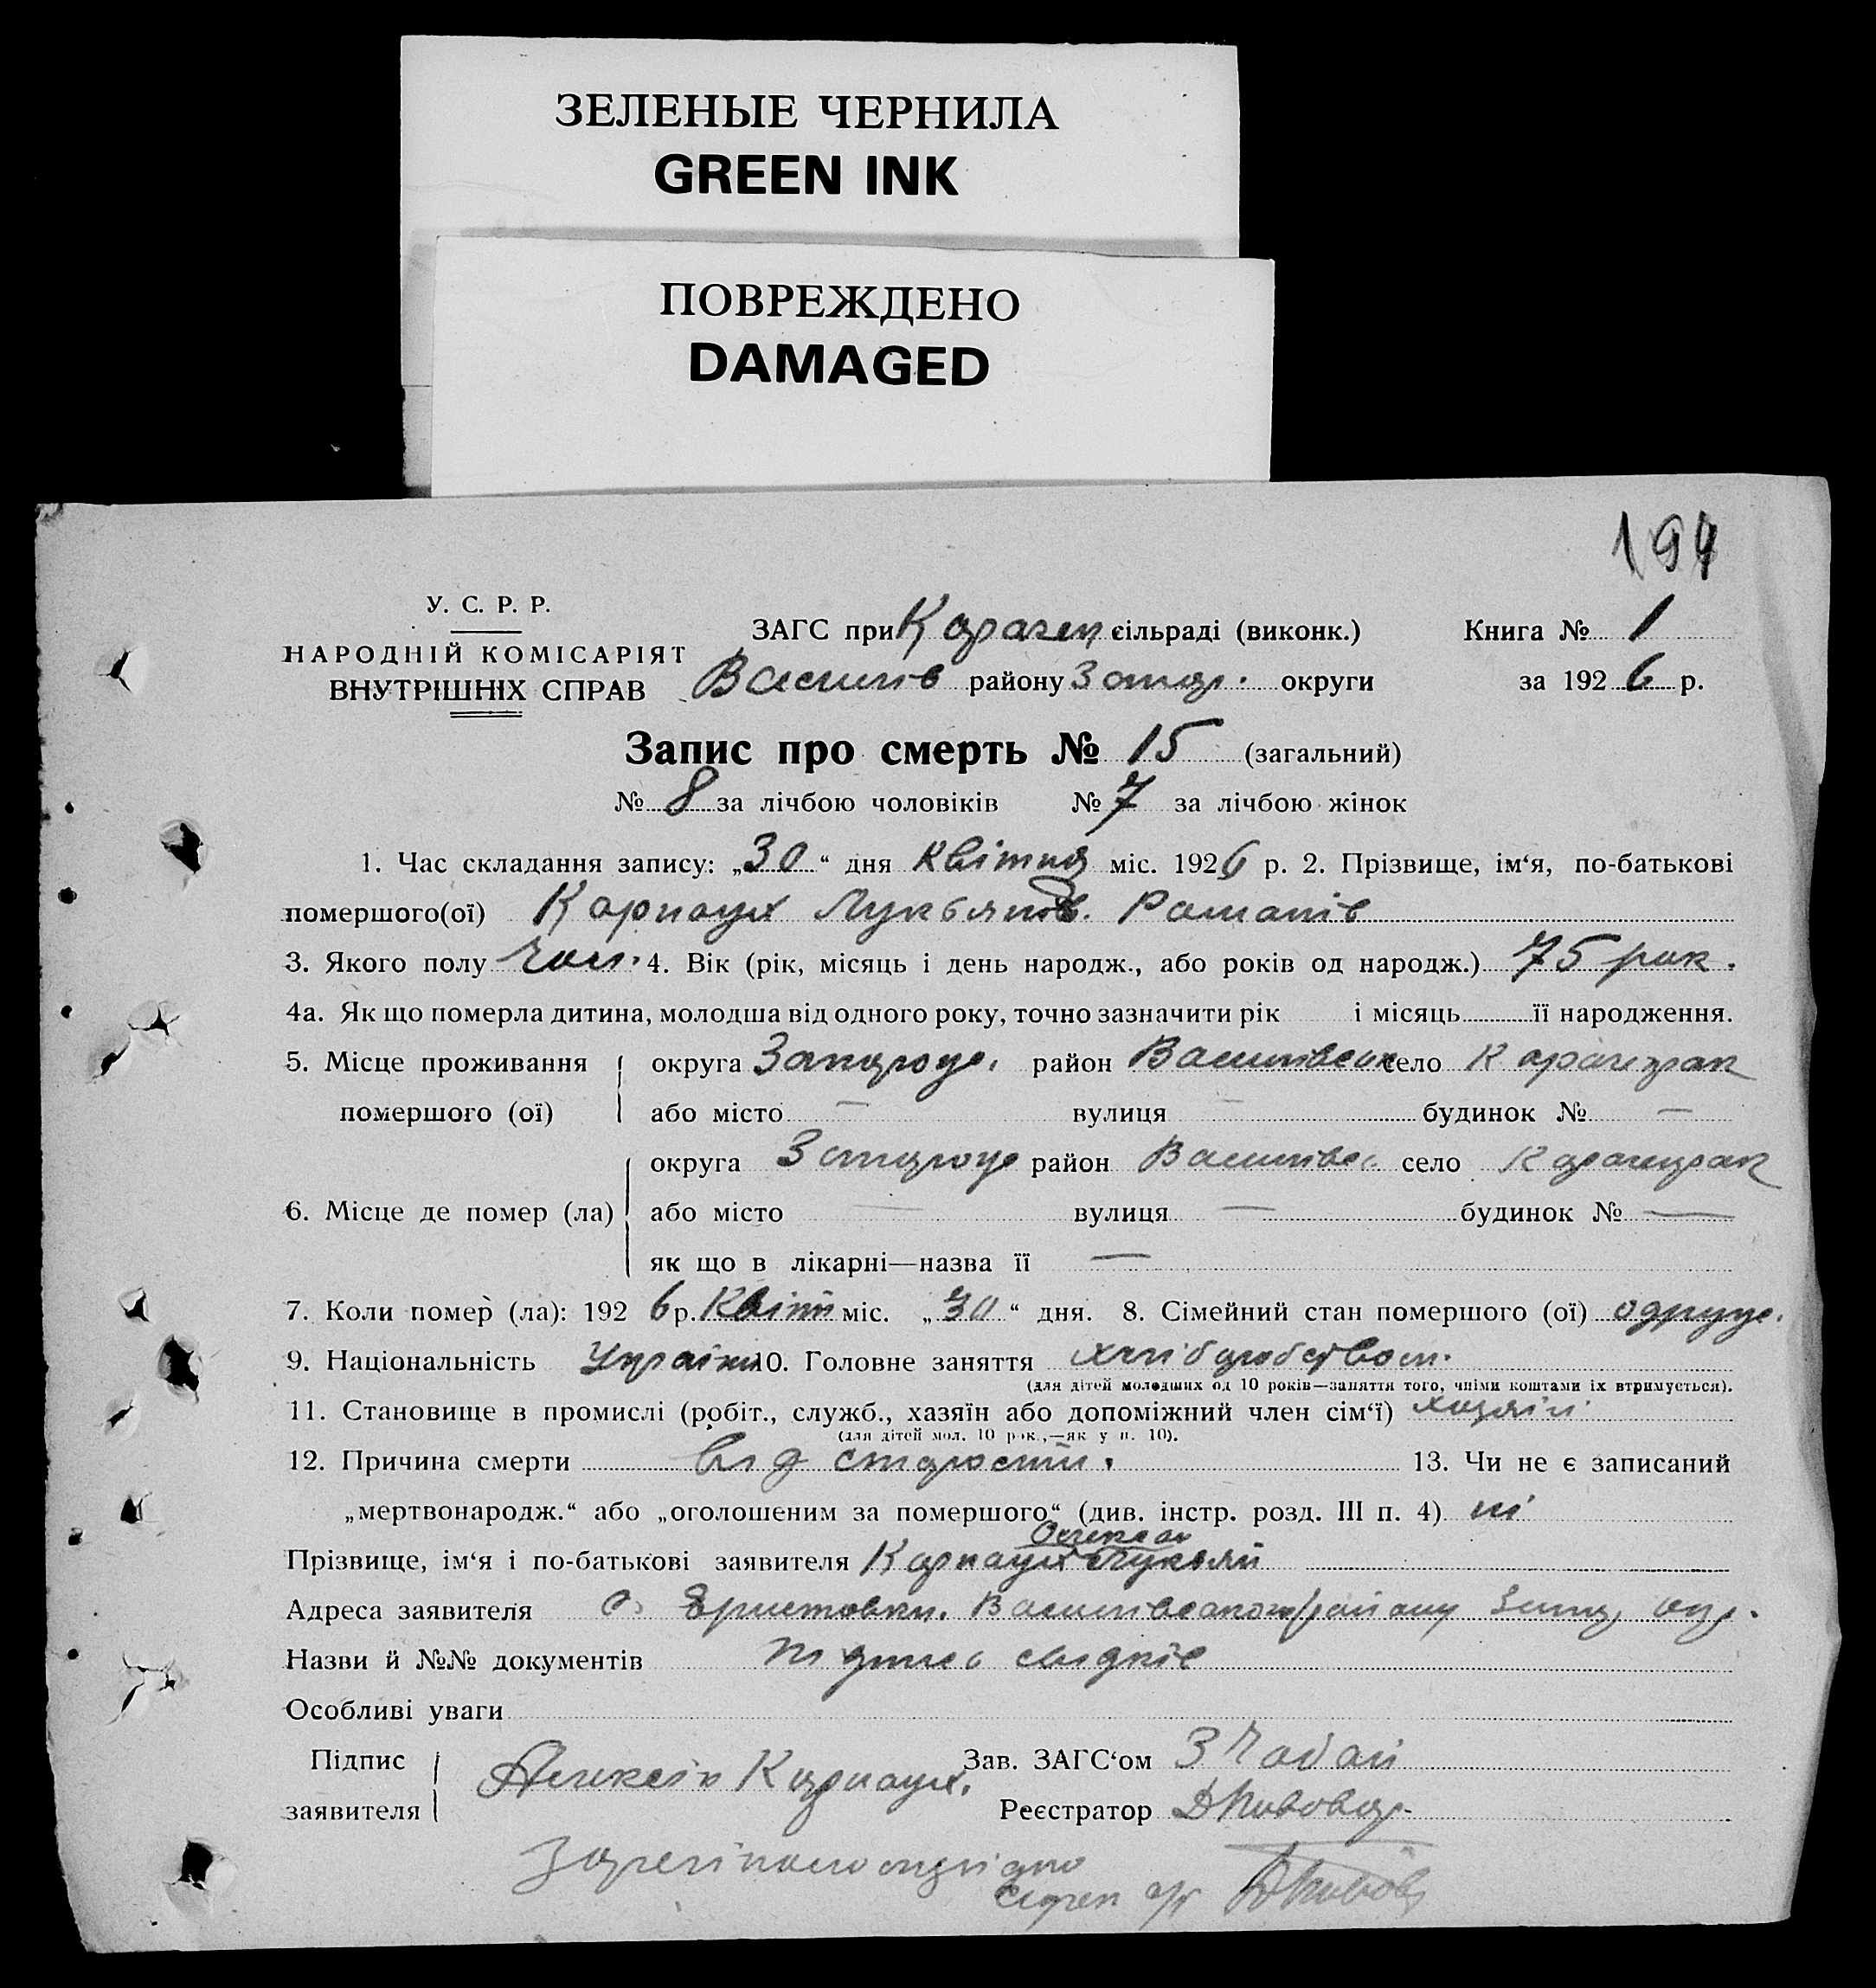 ЗЕЛЕНЫЕ ЧЕРНИЛА
GREEN INK
ПОВРЕЖДЕНО
DAMAGED
194
У. С. Р. Р.
НАРОДНІЙ КОМІСАРІЯТ
ВНУТРІШНІХ СПРАВ
ЗАГС при Карачек сільраді (виконк.) Книга № 1
Василів району Запор. округи за 1926 р.
Запис про смерть № 15 (загальний)
№ 8 за лічбою чоловіків № 7 за лічбою жінок
1. Час складання запису: „30“ дня Квітня міс. 1926 р. 2. Прізвище, ім‘я, по-батькові
помершого(ої) Карнаух Лукьян Романів
3. Якого полу чол. 4. Вік (рік, місяць і день народж., або років од народж.) 75 рок.
4а. Як що померла дитина, молодша від одного року, точно зазначити рік і місяць її народження.
5. Місце проживання округа Запороце. район Василівськ село Карачекрак
помершого (ої) або місто — вулиця — будинок № —
округа Запороце район Василівс. село Карачекрак
6. Місце де помер (ла) або місто — вулиця — будинок № —
як що в лікарні—назва її —
7. Коли помер (ла): 1926 р. Квітн міс. „30“ дня. 8. Сімейний стан помершого (ої) одруже.
9. Національність Україн 10. Головне заняття хліборобством.
(для дітей молодших од 10 років—заняття того, чиїми коштами їх втримується).
11. Становище в промислі (робіт., служб., хазяїн або допоміжний член сім‘ї) хазяїн
(для дітей мол. 10 рок.,—як у п. 10).
12. Причина смерти від старости. 13. Чи не є записаний
„мертвонародж.“ або „оголошеним за помершого“ (див. інстр. розд. III п. 4) ні
Прізвище, ім‘я і по-батькові заявителя Карнаух Олексан Лукьян
Адреса заявителя с. Еристовки. Василівського району Запор. окр.
Назви й №№ документів підпис свидків
Особливі уваги
Підпис Алексій Карнаух. Зав. ЗАГС‘ом З Чабан
заявителя Реєстратор Д Пивовар